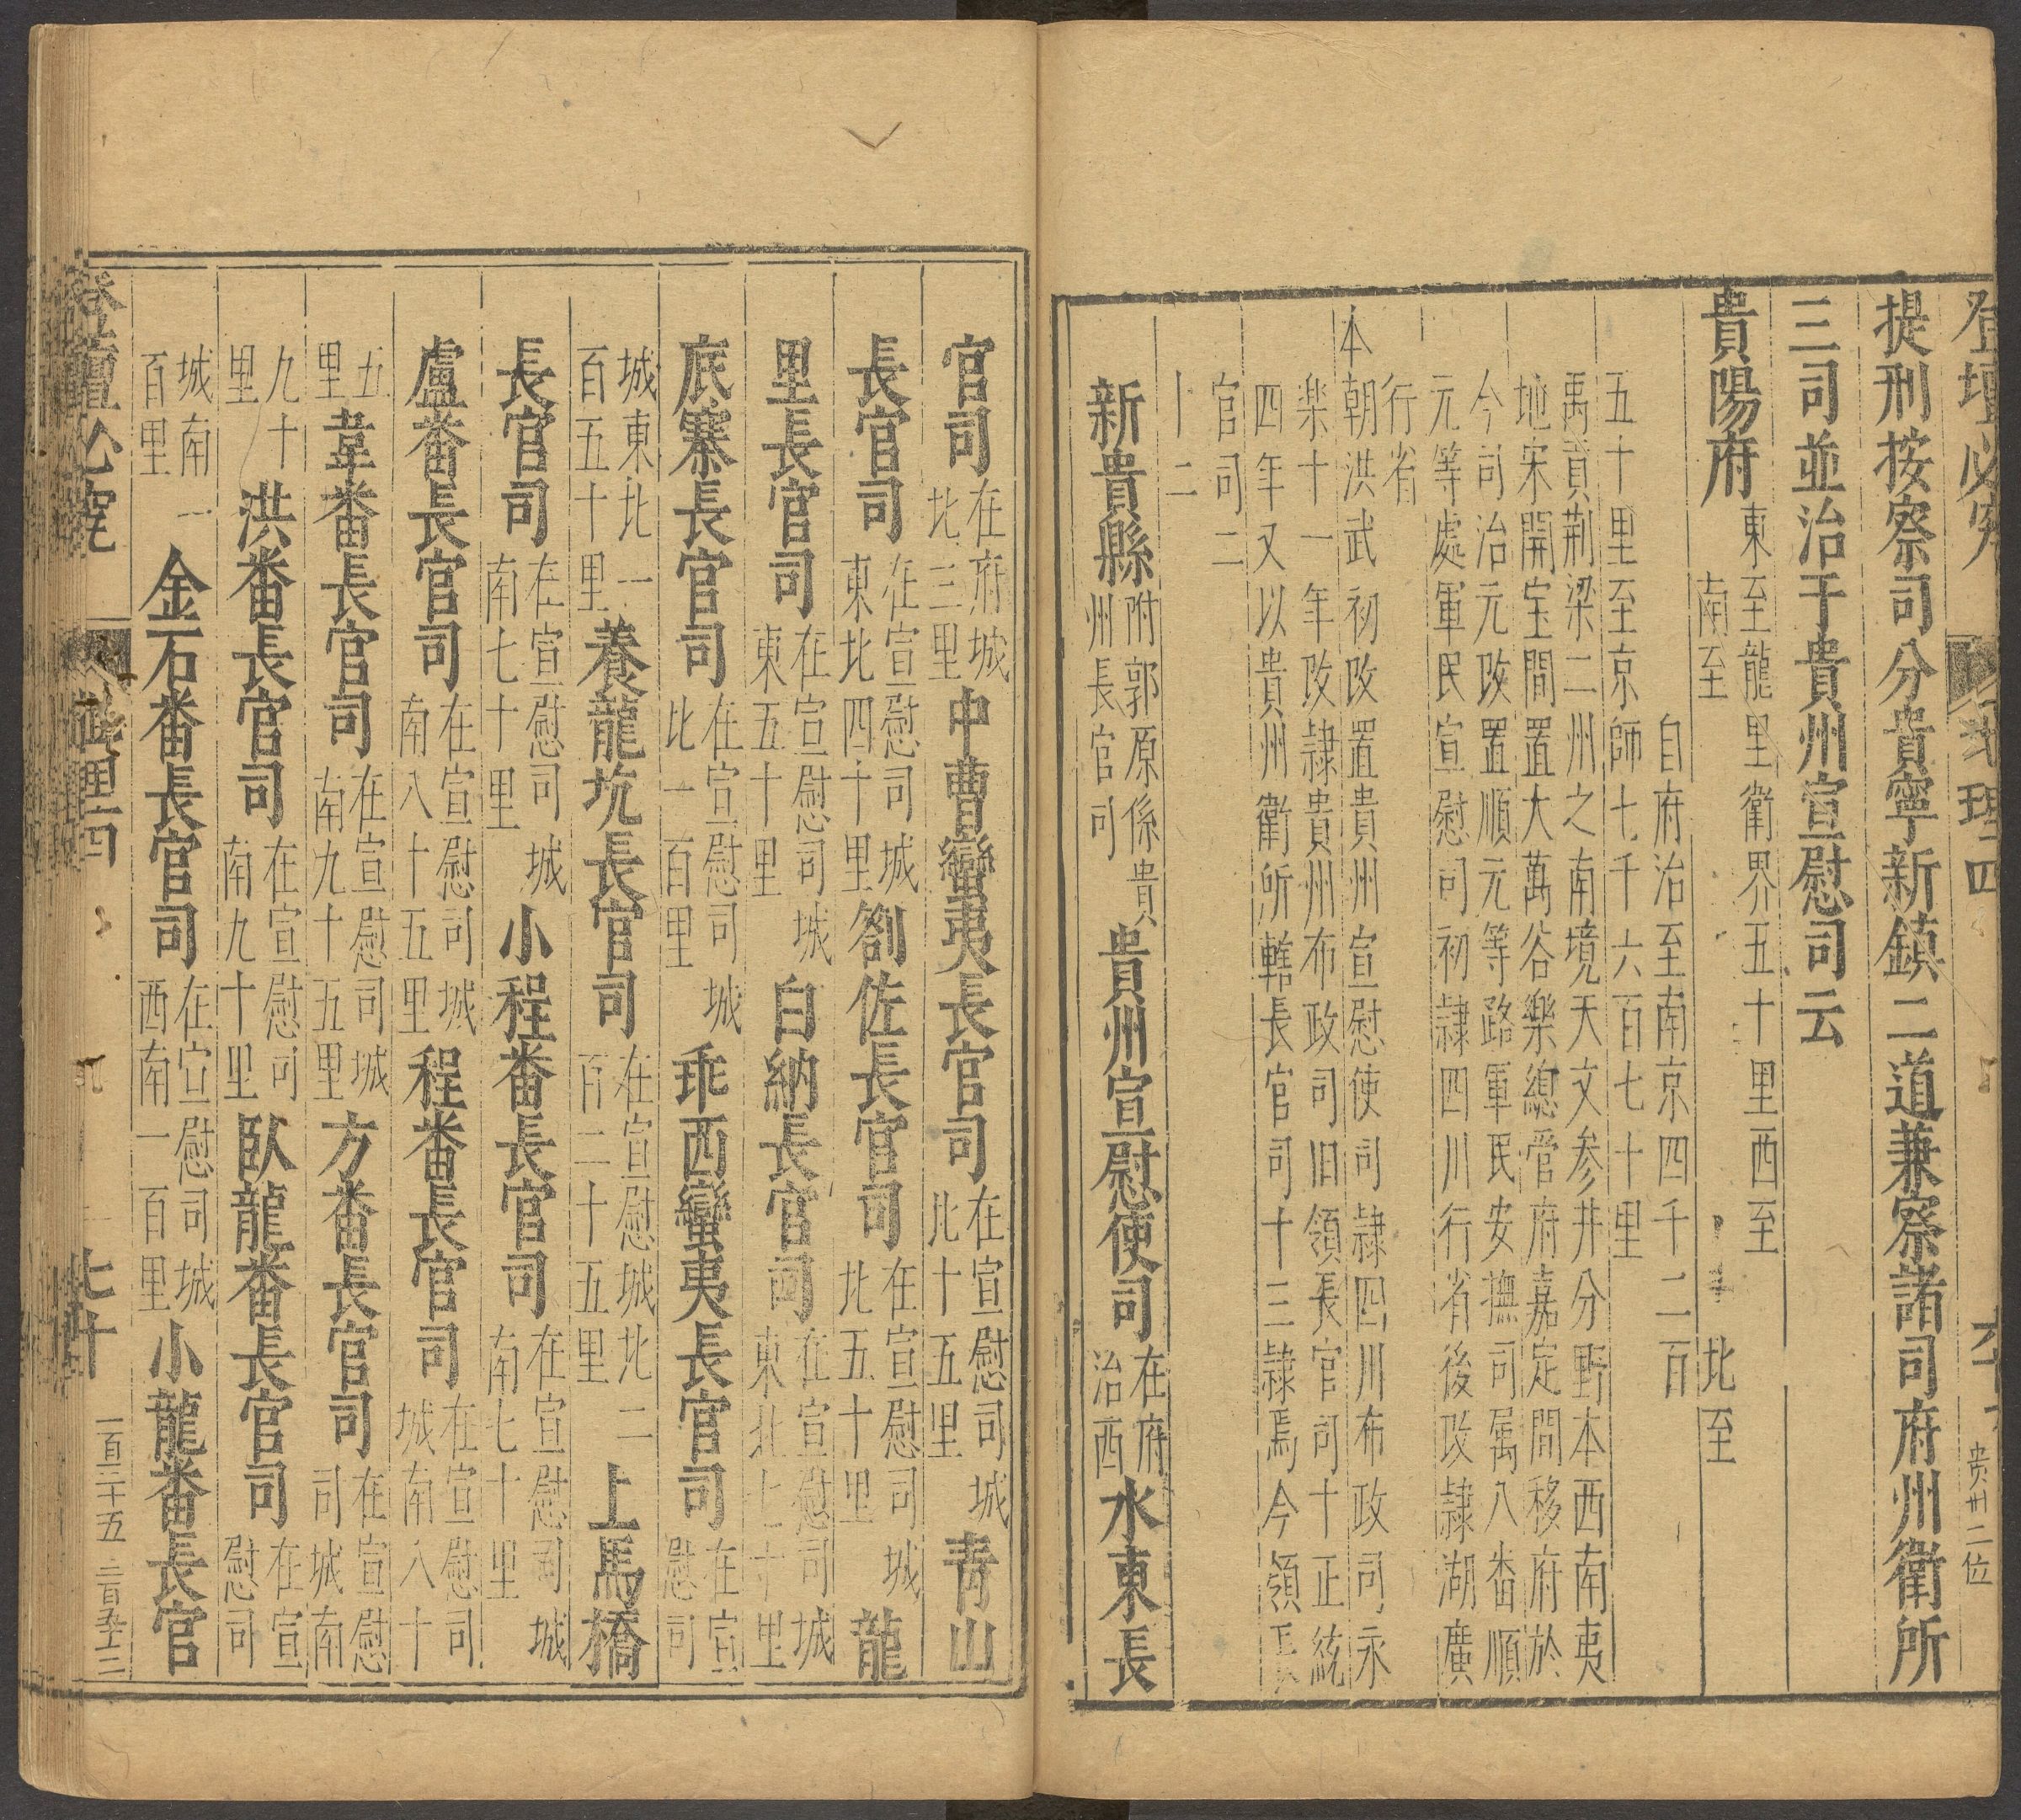 登壇必究 地理四 貴州二位
提刑按察司分貴寧新鎮二道兼察諸司府州衛所
三司並治于貴州宣慰司云
貴陽府東至龍里衛界五十里西至
南至 北至
自府治至南京四千二百
五十里至京師七千六百七十里
禹貢荆梁二州之南境天文参井分野本西南夷
地宋開宝間置大萬谷樂總管府嘉定間移府於
今司治元改置順元等路軍民安撫司属八番順
元等處軍民宣慰司初隷四川行省後改隷湖廣
行省
本朝洪武初改置貴州宣慰使司隷四川布政司永
楽十一年改隷貴州布政司旧領長官司十正統
四年又以貴州衛所轄長官司十三隷焉今領長
官司二
十二
新貴縣附郭原係貴
州長官司貴州宣慰使司在府
治西水東長
官司在府城
北三里中曹蠻夷長官司在宣慰司城
北十五里青山
長官司在宣慰司城
東北四十里劄佐長官司在宣慰司城
北五十里龍
里長官司在宣慰司城
東五十里白納長官司在宣慰司城
東北七十里
底寨長官司在宣慰司城
北一百里乖西蠻夷長官司在宣
慰司
城東北一
百五十里養龍坑長官司在宣慰城北二
百二十五里上馬橋
長官司在宣慰司城
南七十里小程番長官司在宣慰司城
南七十里
盧番長官司在宣慰司城
南八十五里程番長官司在宣慰司
城南八十
五
里韋番長官司在宣慰司城
南九十五里方番長官司在宣慰
司城南
九十
里洪番長官司在宣慰司
南九十里臥龍番長官司在宣
慰司
城南一
百里金石番長官司在宣慰司城
西南一百里小龍番長官
登壇必究 地理四 一百二十五